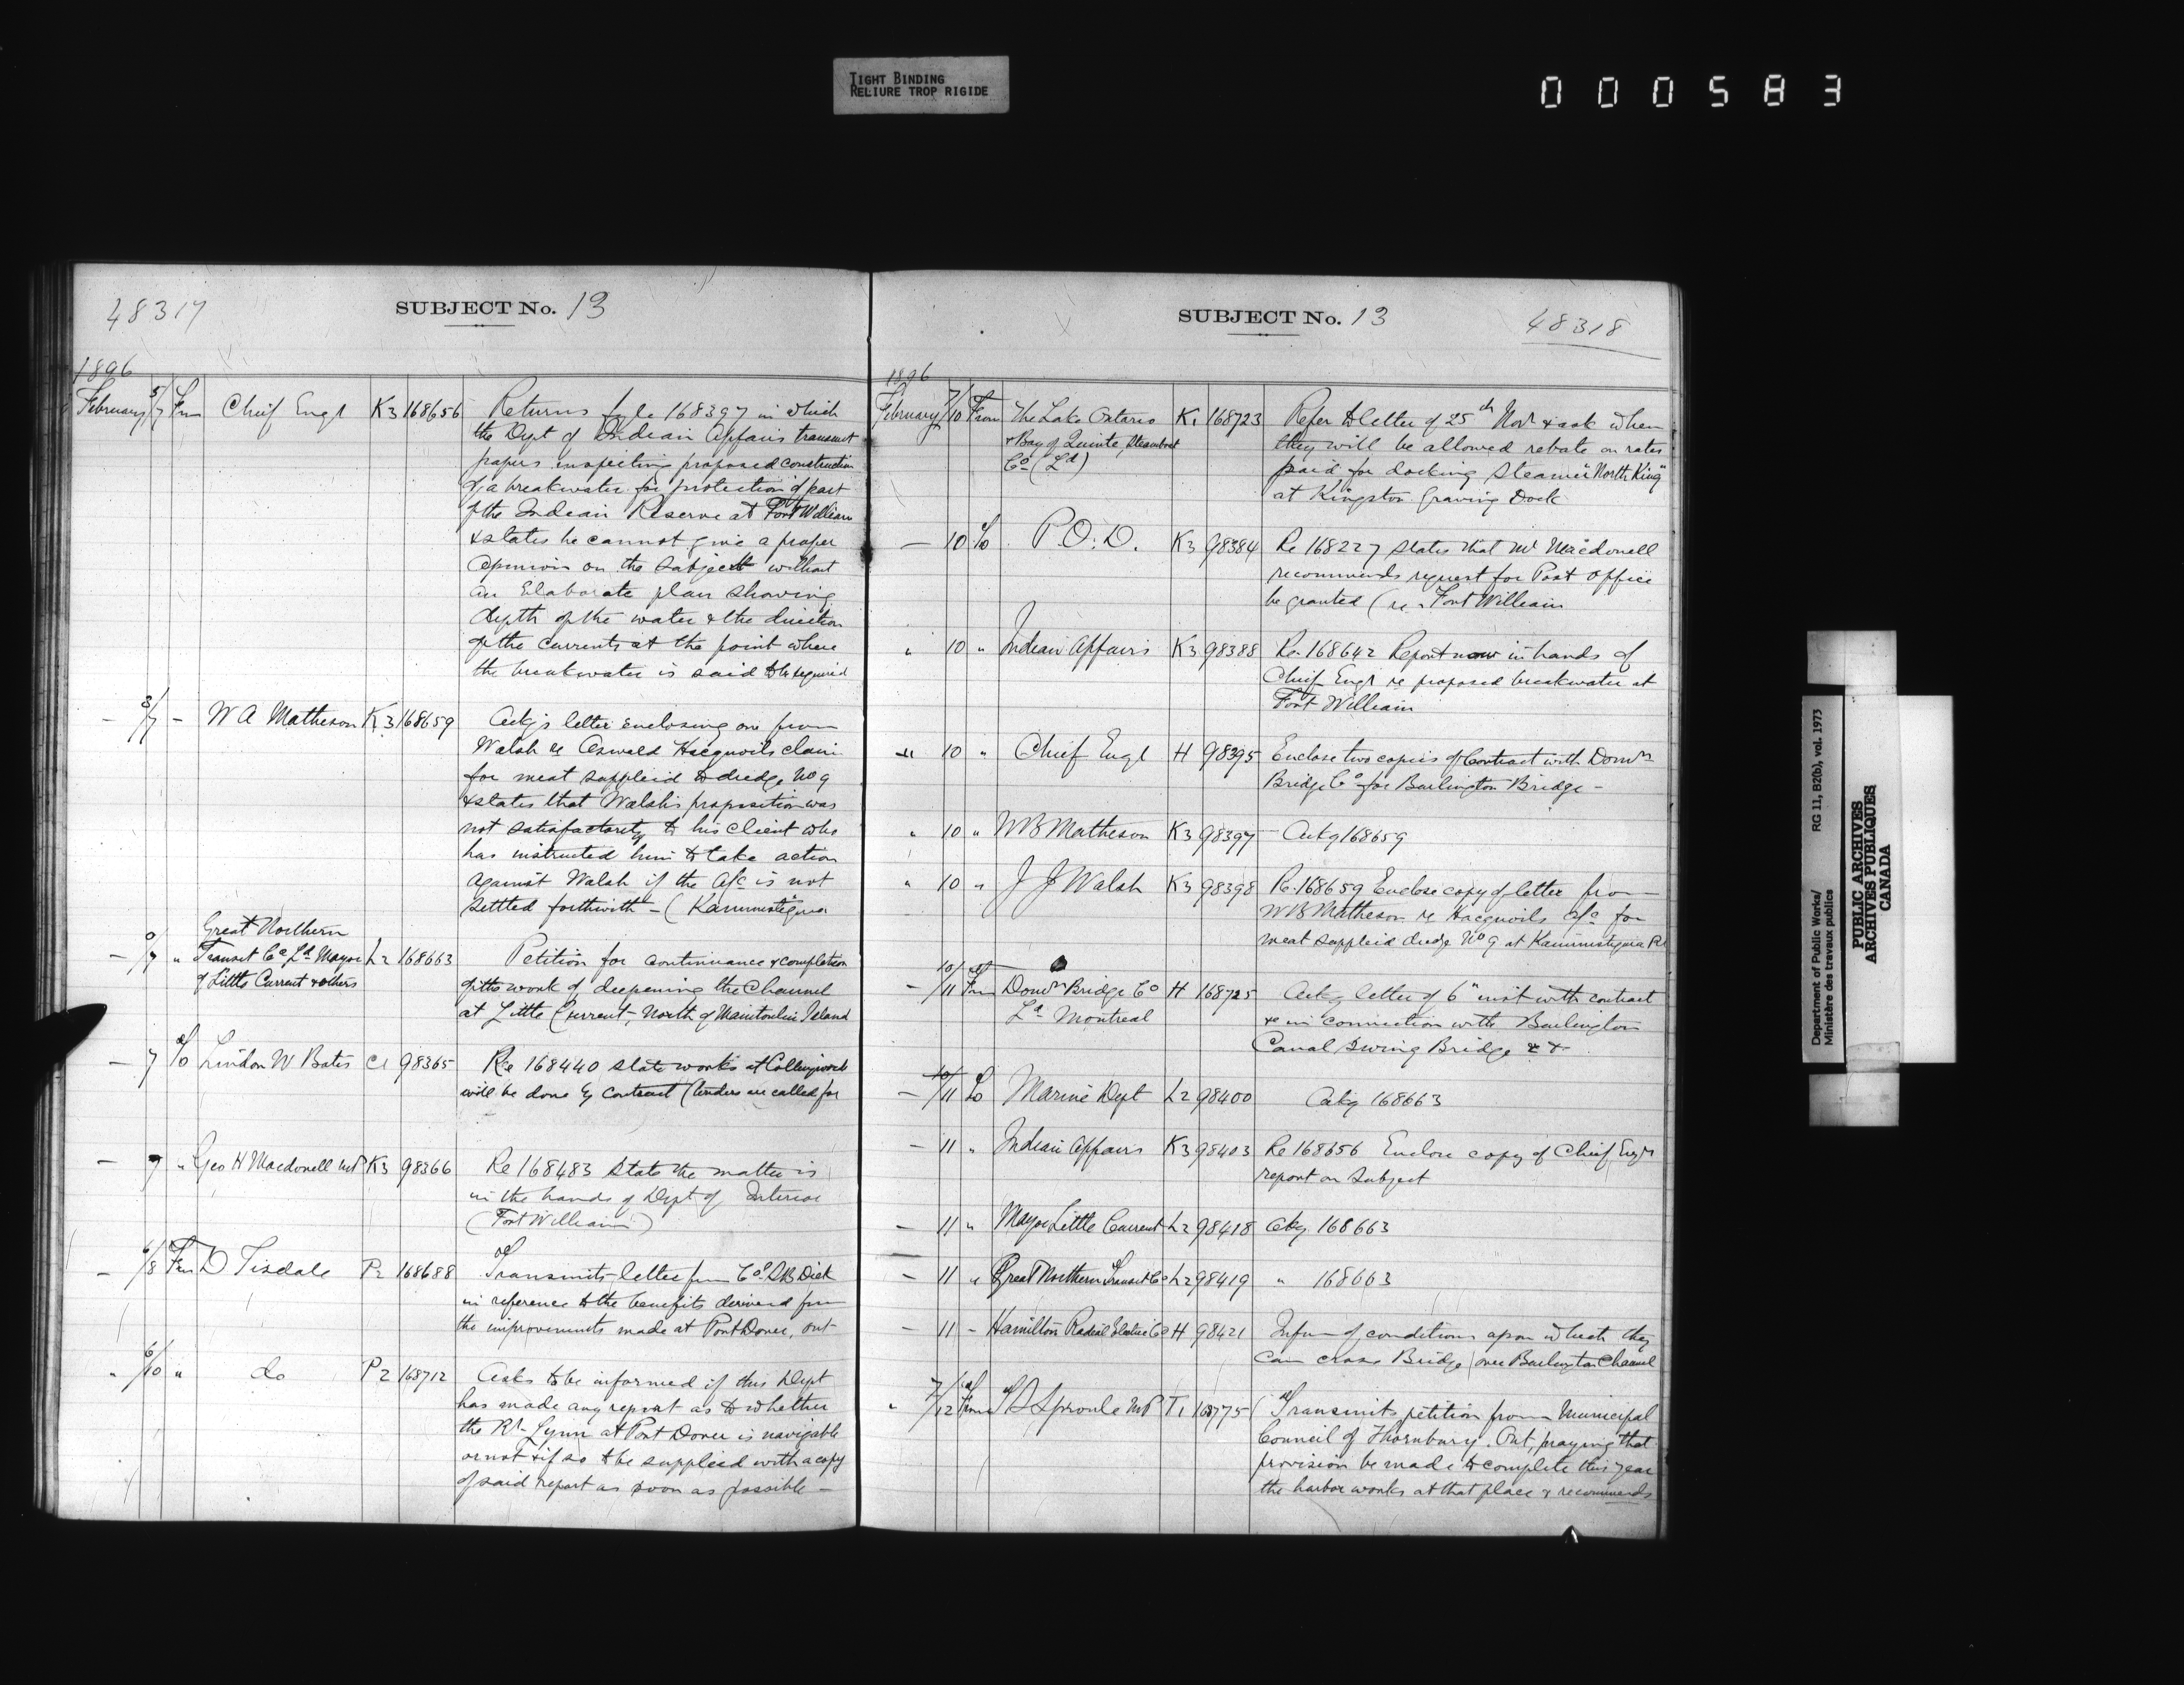 TIGHT BINDING
RELIURE TROP RIGIDE
000583
48317
SUBJECT No. 13
1896
February 5/7 Frm Chief Engr K3 168656 Returns fyle 168397 in which
the Dept of Indian Affairs transmit
papers respecting proposed construction
of a breakwater for protection of part
of the Indian Reserve at Fort William
& states he cannot give a proper
opinion on the subject without
an Elaborate plan showing
depth of the water & the direction
of the currents at the point where
the breakwater is said to be required
— 3/7 — W A Matheson K3 168659 Ackgs letter enclosing one from
Walsh re Oswald Hacquoils claim
for meat supplied to dredge No 9
& states that Walsh's proposition was
not satisfactorily to his client who
has instructed him to take action
against Walsh if the a/c is not
settled forthwith — (Kaministiquia
Great Northern
— /7 " Transit Co Ld Mayor L2 168663 Petition for continuance & completion
of Little Current & others
of the work of deepening the Channel
at Little Current, North of Manitoulin Island
— 7 To Lindon W Bates C1 98365 Re 168440 state works at Collingwood
will be done by contract (tenders are called for
— 7 " Geo H Macdonell MP K3 98366 Re 168483 State the matter is
in the hands of Dept of Interior
(Fort William)
— 6/8 Frm D Tisdale P2 168688 Transmits letter from Col. S B Dick
in reference to the benefits derived from
the improvements made at Port Dover, Ont
" 6/10 " do P2 168712 Asks to be informed if this Dept
has made any report as to whether
the Rr Lynn at Port Dover is navigable
or not & if so to be supplied with a copy
of said report as soon as possible —
SUBJECT No. 13
48318
1896
February 7/10 From The Lake Ontario K1 168723 Refer to letter of 25th Novr & ask when
& Bay of Quinte Steamboat they will be allowed rebate on rates
Co (Ld) paid for docking Steamer "North King"
at Kingston Graving Dock
— 10 To P.O.D. K3 98384 Re 168227 states that Mr Macdonell
recommends request for Post Office
be granted (re Fort William
" 10 " Indian Affairs K3 98388 Re 168642 Report now in hands of
Chief Engr re proposed breakwater at
Fort William
" 10 " Chief Engr H 98395 Enclose two copies of Contract with Domn
Bridge Co for Burlington Bridge —
" 10 " W B Matheson K3 98397 — Ackg 168659
" 10 " J J Walsh K3 98398 Re 168659 Enclose copy of letter from
W B Matheson re Hacquoils a/c for
meat supplied dredge No 9 at Kaministiquia Rr
— 10/11 Frm Domn Bridge Co H 168725 Ackg letter of 6" inst with contract
Ld Montreal &c in connection with Burlington
Canal Swing Bridge &c
— 11 To Marine Dept L2 98400 Ackg 168663
— 11 " Indian Affairs K3 98403 Re 168656 Enclose copy of Chief Engrs
report on subject
— 11 " Mayor Little Current L2 98418 Ackg 168663
— 11 " Great Northern Transit Co L2 98419 " 168663
— 11 — Hamilton Radial Electric Co H 98421 Inform of conditions upon which they
can cross Bridge over Burlington Channel
" 7/12 From T S Sproule MP T1 168775 Transmits petition from Municipal
Council of Thornbury, Ont, praying that
provision be made to complete this year
the harbor works at that place & recommends
Department of Public Works/
Ministère des travaux publics
RG 11, B2(b), vol. 1973
PUBLIC ARCHIVES
ARCHIVES PUBLIQUES
CANADA